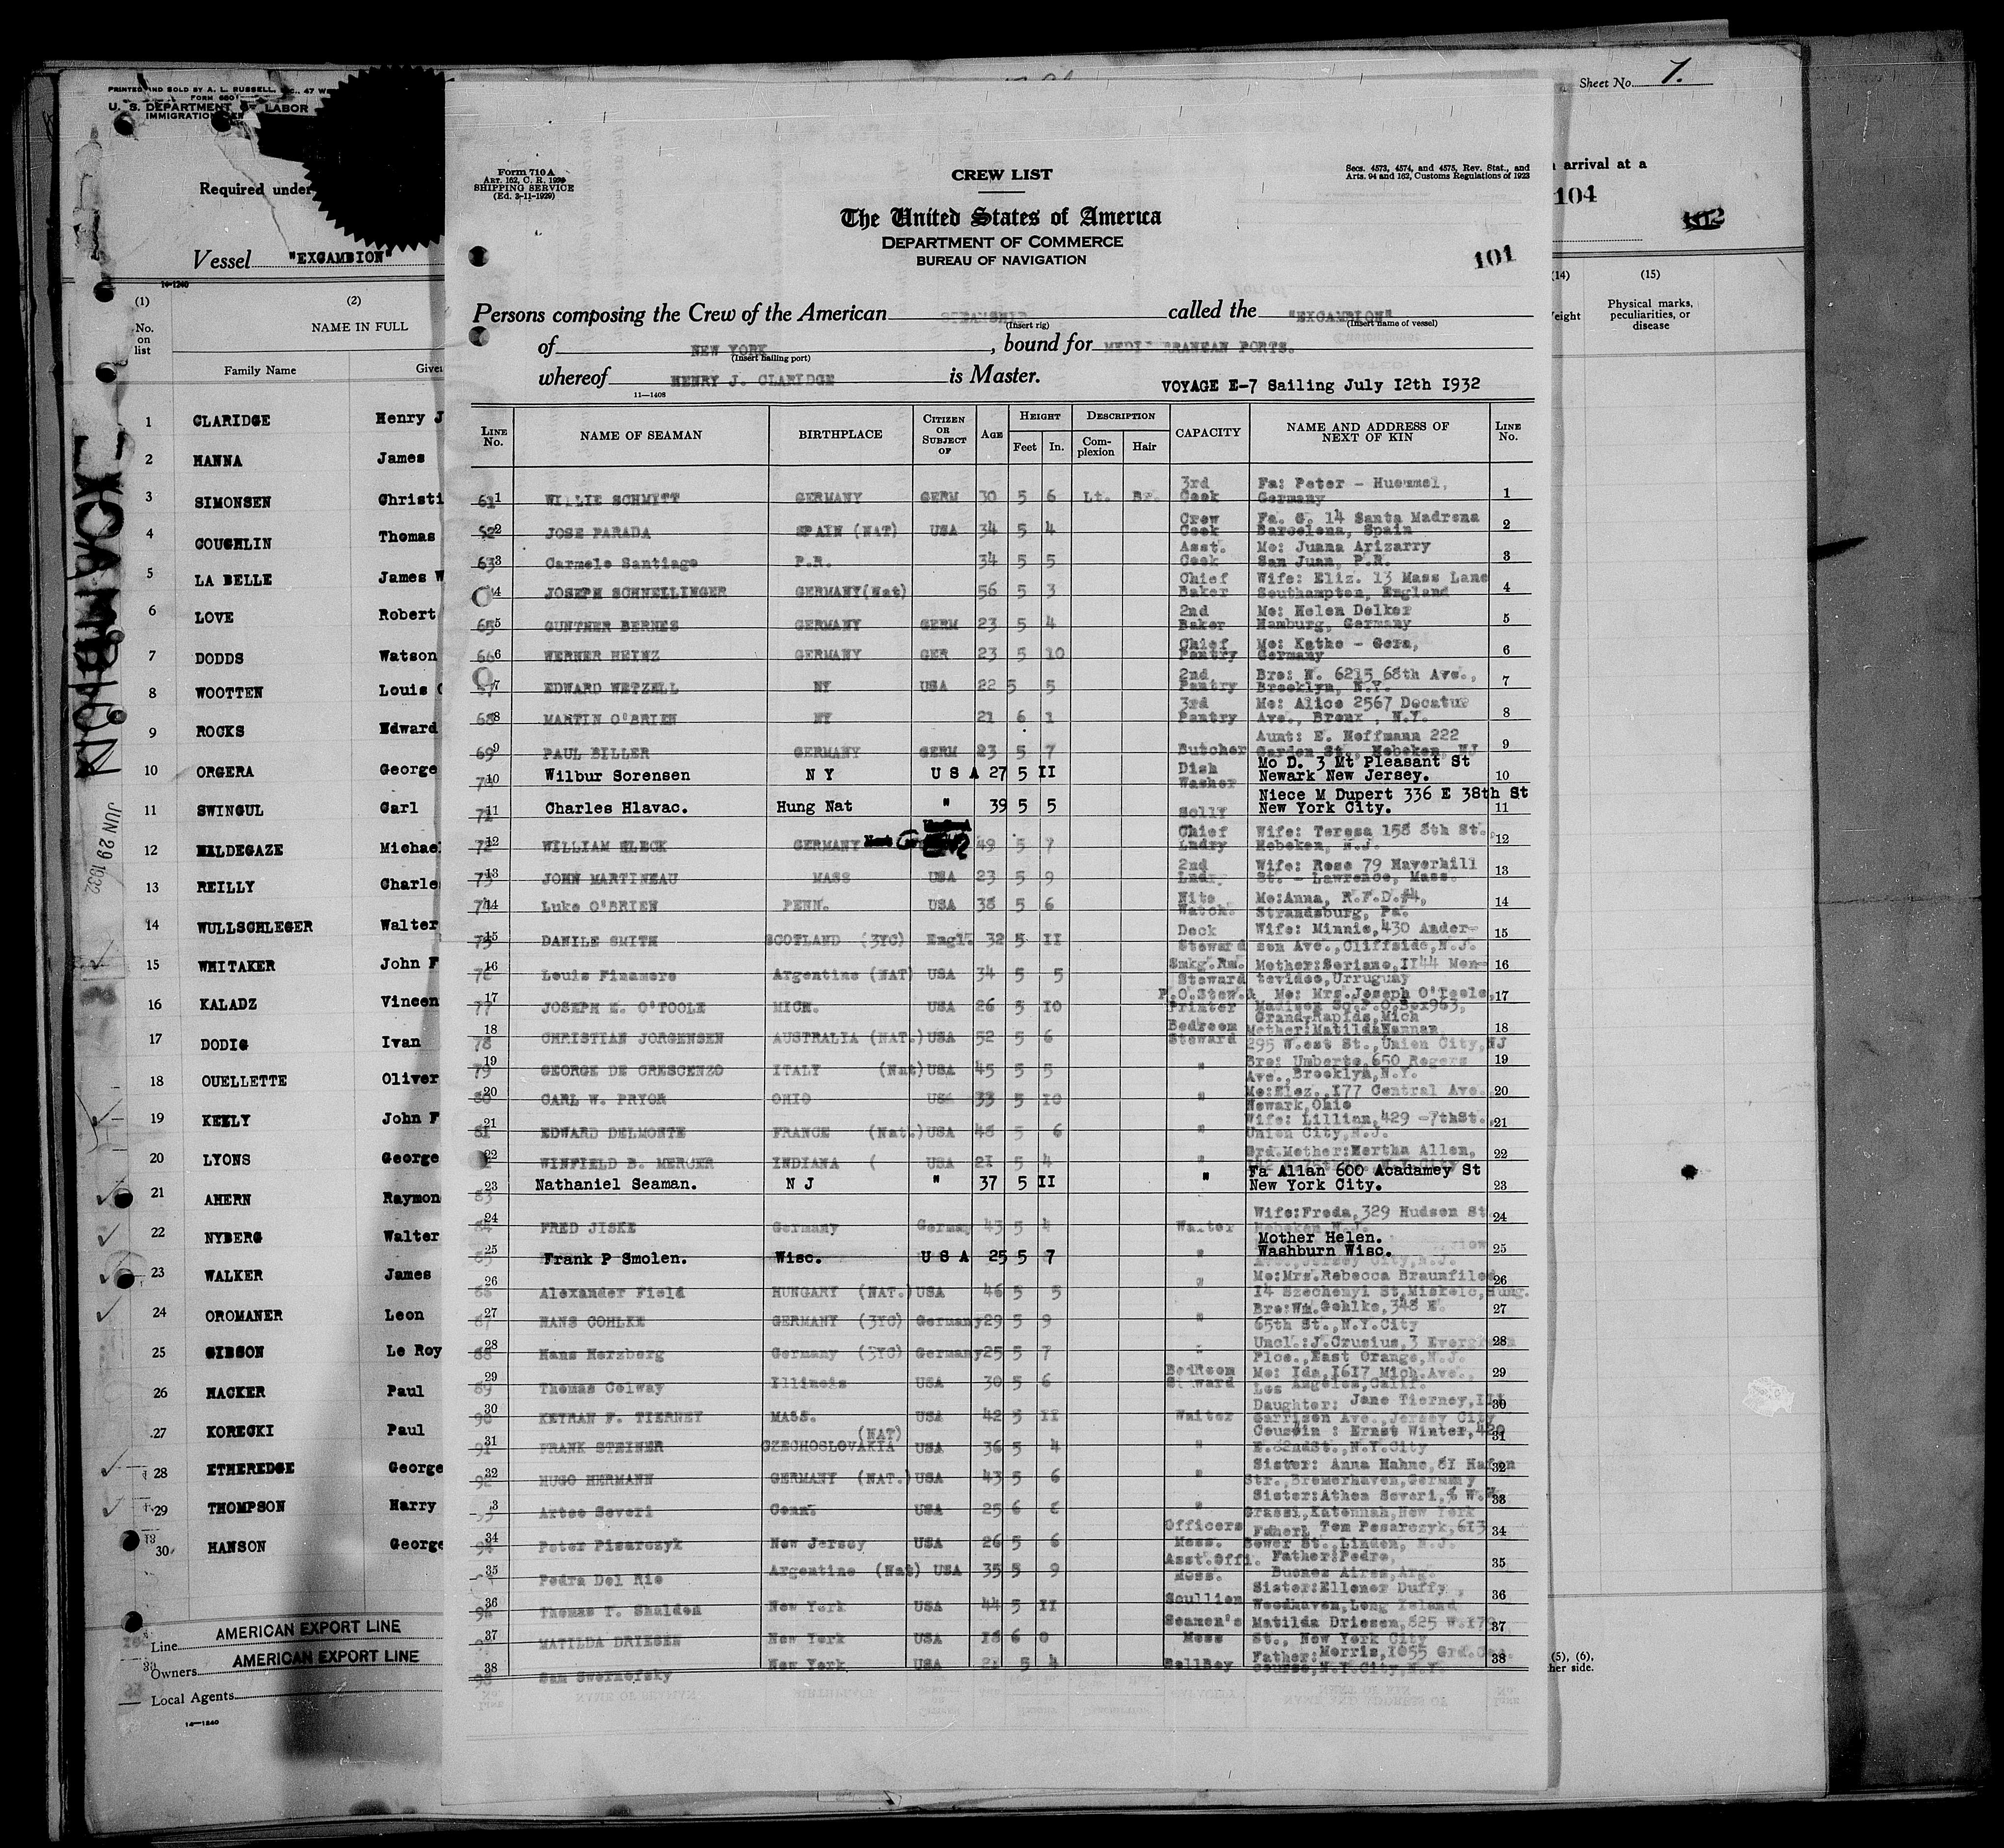 PRINTED AND SOLD BY A. L. RUSSELL, 47 W
FORM 680
U. S. DEPARTMENT OF LABOR
IMMIGRATION
Required under
Vessel "EXCAMBION"
14-1240
(1) (2)
No. on list
NAME IN FULL
Family Name Given
1 CLARIDGE Henry J
2 HANNA James
3 SIMONSEN Christi
4 COUGHLIN Thomas
5 LA BELLE James W
6 LOVE Robert
7 DODDS Watson
8 WOOTTEN Louis
9 ROCKS Edward
10 ORGERA George
11 SWINGUL Carl
12 HILDEGAZE Michael
13 REILLY Charle
14 WULLSCHLEGER Walter
15 WHITAKER John F
16 KALADZ Vincen
17 DODIG Ivan
18 OUELLETTE Oliver
19 KEELY John F
20 LYONS George
21 AHERN Raymon
22 NYBERG Walter
23 WALKER James
24 OROMANER Leon
25 GIBSON Le Roy
26 HACKER Paul
27 KORECKI Paul
28 ETHEREDGE George
29 THOMPSON Harry
30 HANSON George
Line AMERICAN EXPORT LINE
Owners AMERICAN EXPORT LINE
Local Agents
14-1240
EXCAMBION
JUN 29 1932
Form 710 A
ART. 162, C. R. 1923
SHIPPING SERVICE
(Ed. 3-11-1929)
CREW LIST
Secs. 4573, 4574, and 4575, Rev. Stat., and
Arts. 94 and 162, Customs Regulations of 1923
The United States of America
DEPARTMENT OF COMMERCE
BUREAU OF NAVIGATION
101
Persons composing the Crew of the American STEAMSHIP called the "EXCAMBION"
(Insert rig) (Insert name of vessel)
of NEW YORK, bound for MEDI RANEAN PORTS.
(Insert hailing port)
whereof HENRY J. CLARIDGE is Master.
11-1408
VOYAGE E-7 Sailing July I2th I932
LINE No. NAME OF SEAMAN BIRTHPLACE CITIZEN OR SUBJECT OF AGE HEIGHT Feet In. DESCRIPTION Complexion Hair CAPACITY NAME AND ADDRESS OF NEXT OF KIN LINE No.
61 1 WILLIE SCHMITT GERMANY GERM 30 5 6 Lt. Br. 3rd Cook Fa: Peter - Huemmel, Germany 1
52 2 JOSE PARADA SPAIN (NAT) USA 34 5 4 Crew Cook Fa. G. 14 Santa Madrena Barcelona, Spain 2
63 3 Carmelo Santiago P.R. 34 5 5 Asst. Cook Mo: Juana Arizarry San Juan, P.R. 3
4 JOSEPH SCHNELLINGER GERMANY(Nat) 56 5 3 Chief Baker Wife: Eliz. 13 Mass Lane Southampton, England 4
65 5 GUNTHER BERNES GERMANY GERM 23 5 4 2nd Baker Mo: Helen Delker Hamburg, Germany 5
66 6 WERNER HEINZ GERMANY GER 23 5 10 Chief Pantry Mo: Kathe - Gera, Germany 6
7 EDWARD WETZELL NY USA 22 5 5 2nd Pantry Bro: N. 6215 68th Ave., Brooklyn, N.Y. 7
68 8 MARTIN O'BRIEN NY 21 6 1 3rd Pantry Mo: Alice 2567 Decatur Ave., Bronx, N.Y. 8
69 9 PAUL BILLER GERMANY GERM 23 5 7 Butcher Aunt: E. Hoffmann 222 Garden St., Hoboken, NJ 9
70 10 Wilbur Sorensen N Y U S A 27 5 II Dish Washer Mo D. 3 Mt Pleasant St Newark New Jersey. 10
71 11 Charles Hlavac. Hung Nat " 39 5 5 Scully Niece M Dupert 336 E 38th St New York City. 11
72 12 WILLIAM HLECK GERMANY 49 5 7 Chief Lndry Wife: Teresa 158 8th St., Hoboken, N.J. 12
73 13 JOHN MARTINEAU MASS USA 23 5 9 2nd Lndry Wife: Rose 79 Haverhill St. - Lawrence, Mass. 13
74 14 Luke O'BRIEN PENN. USA 38 5 6 Nite Watch. Mo:Anna, R.F.D.#4, Strandsburg, Pa. 14
75 15 DANILE SMITH SCOTLAND (3YC) Engl. 32 5 II Deck Steward Wife: Minnie,430 Anderson Ave.,Cliffside,N.J. 15
76 16 Louis Finamore Argentine (NAT) USA 34 5 5 Smkg.Rm. Steward Mother:Soriano,II44 Montevideo,Urruguay 16
77 17 JOSEPH E. O'TOOLE MICH. USA 26 5 IO P.O.Stew.& Printer Mo: Mrs.Joseph O'Toole, Madison Sq.P.O.Box963, Grand Rapids,Mich 17
78 18 CHRISTIAN JORGENSEN AUSTRALIA (NAT.) USA 52 5 6 Bedroom Steward Mother:MatildaHannan 295 W.est St.,Union City,NJ 18
79 19 GEORGE DE CRESCENZO ITALY (Nat) USA 45 5 5 " Bro: Umberto,650 Rogers Ave.,Brooklyn,N.Y. 19
80 20 CARL W. PRYOR OHIO USA 33 5 IO " Mo:Eloz.,I77 Central Ave. Newark,Ohio 20
81 21 EDWARD DELMONTE FRANCE (Nat.) USA 48 5 6 " Wife: Lillian,429 -7thSt., Union City,N.J. 21
22 WINFIELD B. MERCER INDIANA ( USA 2I 5 4 " Grd.Mother:Hertha Allen, 22
83 23 Nathaniel Seaman. N J " 37 5 II " Fa Allan 600 Acadamey St New York City. 23
84 24 FRED JISKE Germany German 45 5 4 Waiter Wife:Freda,329 Hudson St Hoboken,N.J. 24
85 25 Frank P Smolen. Wisc. U S A 25 5 7 " Mother Helen. Washburn Wisc. 25
86 26 Alexander Field HUNGARY (NAT.) USA 46 5 5 " Mo:Mrs.Rebecca Braunfiled I4 Szechenyi St,Miskolc,Hung. 26
87 27 HANS GOHLKE GERMANY (3YC) Germany 29 5 9 " Bro:Wm.Gohlke,348 E. 65th St.,N.Y.City 27
88 28 Hans Herzberg Germany (3YC) Germany 25 5 7 " Uncl.:J.Crusius,3 Evergreen Plce.,East Orange,N.J. 28
89 29 Thomas Colway Illinois USA 30 5 6 BedRoom Steward Mo: Ida,I6I7 Mich.Ave., Los Angeles,Calif. 29
90 30 KEYRAN F. TIERNEY MASS. USA 42 5 II Waiter Daughter: Jane Tierney,III Garrison Ave.,Jersey City 30
91 31 FRANK STEINER CZECHOSLOVAKIA (NAT) USA 36 5 4 " Cousin : Ernst Winter,420 E.82ndSt.,N.Y.City 31
92 32 HUGO HERMANN GERMANY (NAT.) USA 43 5 6 " Sister: Anna Hahno,8I Hafen Str.,Bremerhaven,Germany 32
3 Arteo Severi Conn. USA 25 6 " Sister:Athea Severi,% W. Grassi,Katonnah,New York 33
34 Peter Pisarczyk New Jersey USA 26 5 6 Officers Mess. Father: Tom Pasarczyk,6I3 Bower St.,Linden, N.J. 34
35 Pedra Del Rio Argentine (Nat) USA 35 5 9 Asst.Offi. Mess. Father:Pedro, Buenos Aires,Arg. 35
96 36 Thomas T. Shalden New York USA 44 5 II Scullion Sister:Ellener Duffy, Woodhaven,Long Island 36
37 MATILDA DRIESEN New York USA I8 6 0 Seamen's Mess Matilda Driesen,825 W.I79 St., New York City 37
98 38 Sam Swernofsky New York USA 21 5 4 BellBoy Father:Morris,I055 Grd.Con. course,N.Y.City,N.Y. 38
Sheet No. 7.
arrival at a
104
(14) (15)
Physical marks, peculiarities, or disease
(5), (6),
her side.